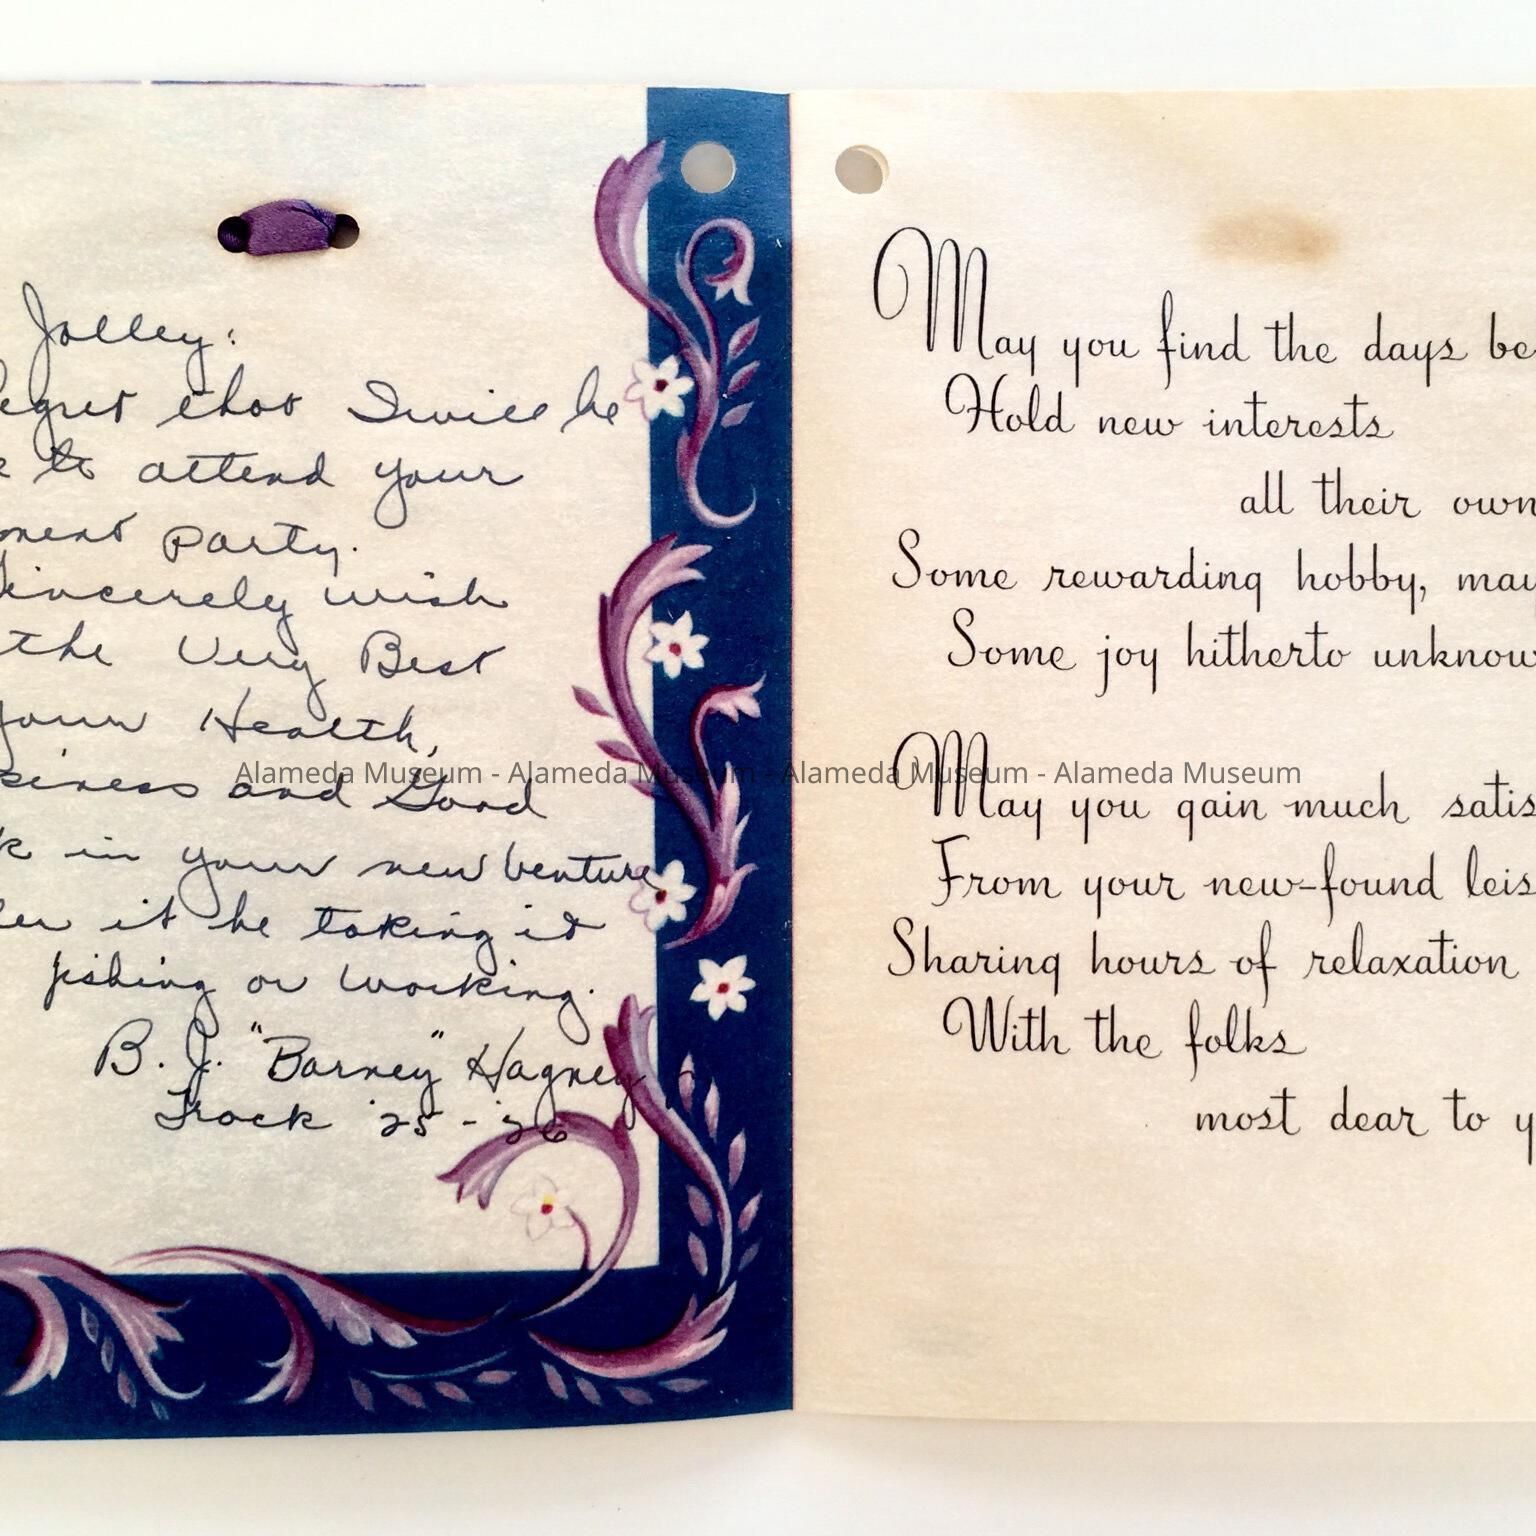 Jolley:
egret that I will be
to attend your
ment party.
Sincerely wish
the Very Best
your Health,
piness and Good
k in your new venture
er it be taking it
fishing or working.
B. J. "Barney" Hagney
Track '25 - '26
May you find the days be
Hold new interests
all their own
Some rewarding hobby, may
Some joy hitherto unknow
May you gain much satis
From your new-found leis
Sharing hours of relaxation
With the folks
most dear to y
Alameda Museum - Alameda Museum - Alameda Museum - Alameda Museum